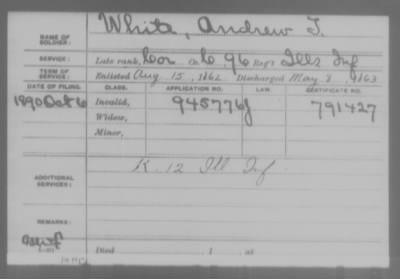 NAME OF SOLDIER: White, Andrew J.
SERVICE: Late rank, Cor. Co. C 96 Reg't Ills Inf
TERM OF SERVICE: Enlisted Aug 15, 1862 Discharged May 8, 1863
DATE OF FILING. CLASS. APPLICATION NO. LAW. CERTIFICATE NO.
1890 Oct 6 Invalid, 945776 791427
Widow,
Minor,
ADDITIONAL SERVICES: K. 12 Ill Inf
REMARKS:
Died , 1 , at